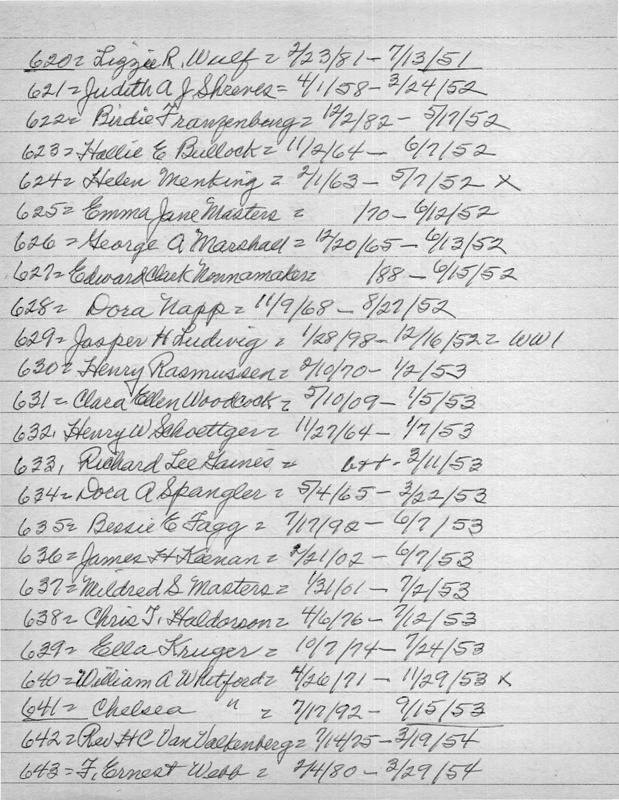 620 = Lizzie R. Wulf = 2/23/81 - 7/13/51
621 = Judith A J Shreves = 4/1/58 - 3/24/52
622 = Birdie Franzenburg = 12/2/82 - 5/17/52
623 = Hallie E Bullock = 11/2/64 - 6/7/52
624 = Helen Menking = 2/1/63 - 5/7/52 X
625 = Emma Jane Masters = /70 - 6/12/52
626 = George A Marshall = 12/20/65 - 6/13/52
627 = Edward Clark Nonnamaker = /88 - 6/15/52
628 = Dora Napp = 11/9/68 - 8/27/52
629 = Jasper H Ludwig = 1/28/98 - 12/16/52 = WW1
630 = Henry Rasmussen = 2/10/70 - 1/2/53
631 = Clara Ellen Woodcock = 5/10/09 - 1/5/53
632, Henry W Schoettger = 11/27/64 - 1/7/53
633, Richard Lee Gaines = b++ - 3/11/53
634 = Dora A Spangler = 5/4/65 - 3/22/53
635 = Bessie E Fagg = 7/17/92 - 6/7/53
636 = James H Keenan = /21/02 - 6/7/53
637 = Mildred S Masters = 1/31/01 - 7/2/53
638 = Chris T. Haldorson = 4/6/76 - 7/12/53
639 = Ella Kruger = 10/7/74 - 7/24/53
640 = William A Whitford = 4/26/71 - 11/29/53 X
641 = Chelsea " = 7/17/92 - 9/15/53
642 = Rev H C Van Valkenberg = 7/14/75 - 3/19/54
643 = F. Ernest Webb = 2/4/80 - 3/29/54